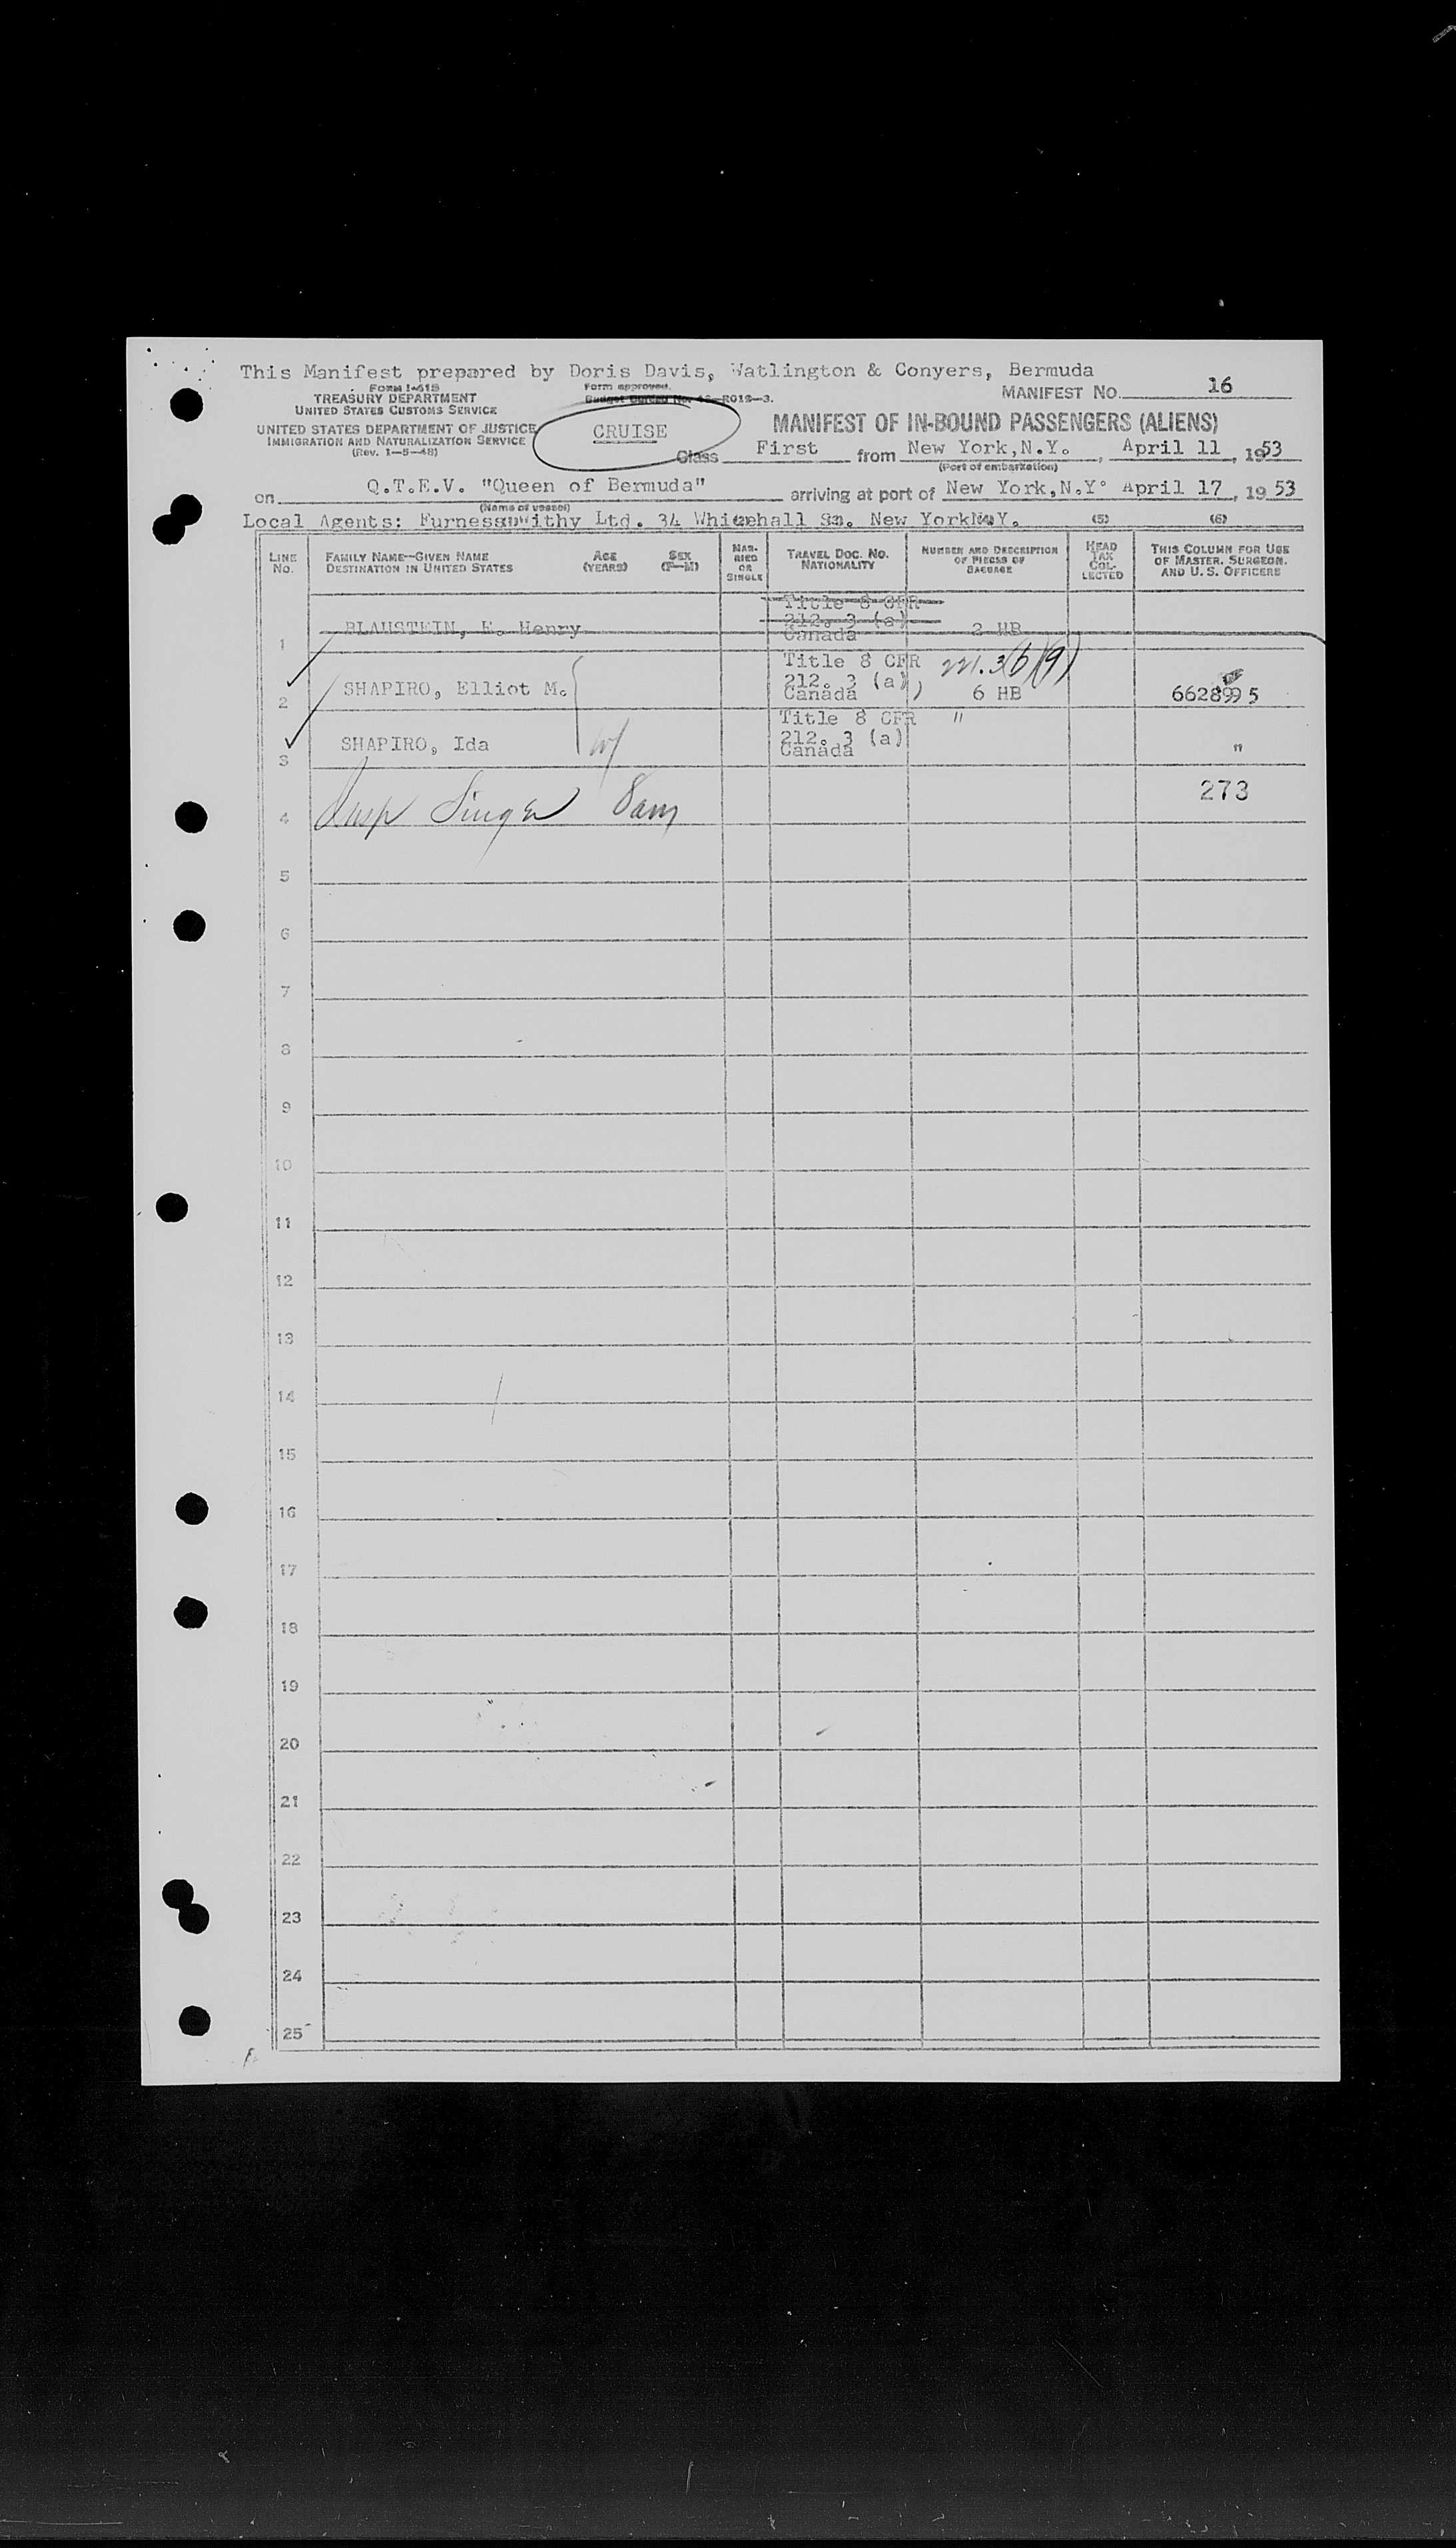 This Manifest prepared by Doris Davis, Watlington & Conyers, Bermuda
FORM I-415
TREASURY DEPARTMENT
UNITED STATES CUSTOMS SERVICE
UNITED STATES DEPARTMENT OF JUSTICE
IMMIGRATION AND NATURALIZATION SERVICE
(Rev. 1-5-48)
Form approved.
Budget Bureau No. 43-R019-3.
MANIFEST NO. 16
CRUISE
MANIFEST OF IN-BOUND PASSENGERS (ALIENS)
Class First from New York, N.Y., April 11, 1953
(Port of embarkation)
on Q.T.E.V. "Queen of Bermuda" arriving at port of New York, N.Y. April 17, 1953
(Name of vessel)
Local Agents: Furness Withy Ltd. 34 Whitehall St. New York N.Y. (5) (6)
LINE No. FAMILY NAME—GIVEN NAME DESTINATION IN UNITED STATES AGE (YEARS) SEX (F—M) MARRIED OR SINGLE TRAVEL DOC. NO. NATIONALITY NUMBER AND DESCRIPTION OF PIECES OF BAGGAGE HEAD TAX COLLECTED THIS COLUMN FOR USE OF MASTER, SURGEON, AND U. S. OFFICERS
Title 8 CFR
212. 3 (a)
1 BLAUSTEIN, E. Henry Canada 2 HB
Title 8 CFR 221.3(b)(9)
212. 3 (a)
2 SHAPIRO, Elliot M. Canada ) 6 HB 6628995
Title 8 CFR "
212. 3 (a)
3 SHAPIRO, Ida w/ Canada "
273
4 Insp Singer 8am
5
6
7
8
9
10
11
12
13
14
15
16
17
18
19
20
21
22
23
24
25